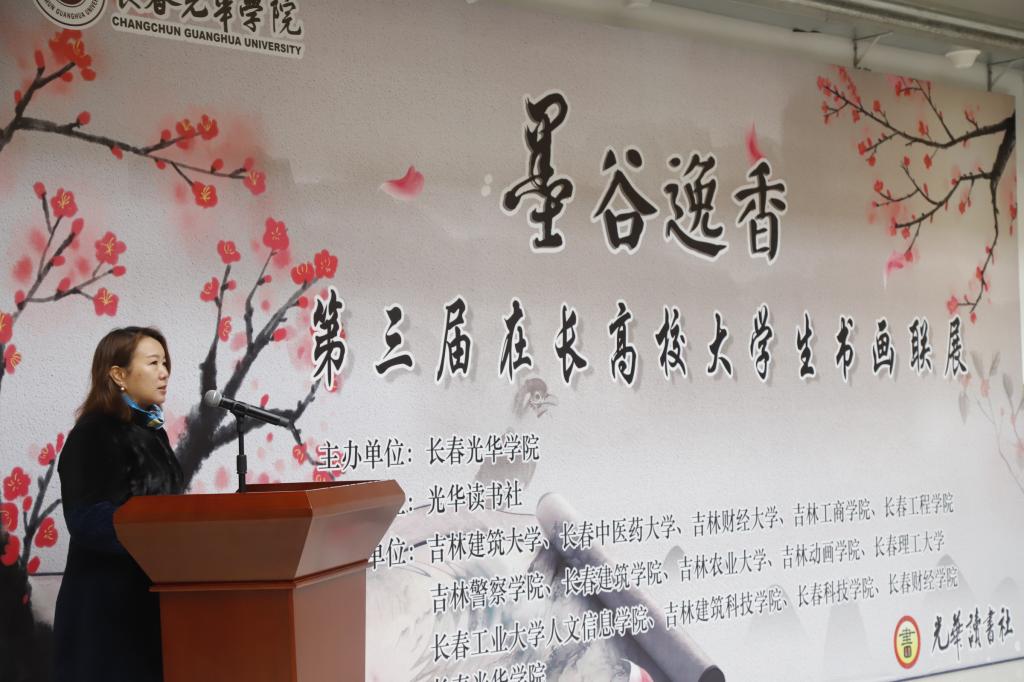 长春光华学院
CHANGCHUN GUANGHUA UNIVERSITY
墨谷逸香
第三届在长高校大学生书画联展
主办单位：长春光华学院
光华读书社
单位：吉林建筑大学、长春中医药大学、吉林财经大学、吉林工商学院、长春工程学院
吉林警察学院、长春建筑学院、吉林农业大学、吉林动画学院、长春理工大学
长春工业大学人文信息学院、吉林建筑科技学院、长春科技学院、长春财经学院
长春光华学院
書
光華讀書社